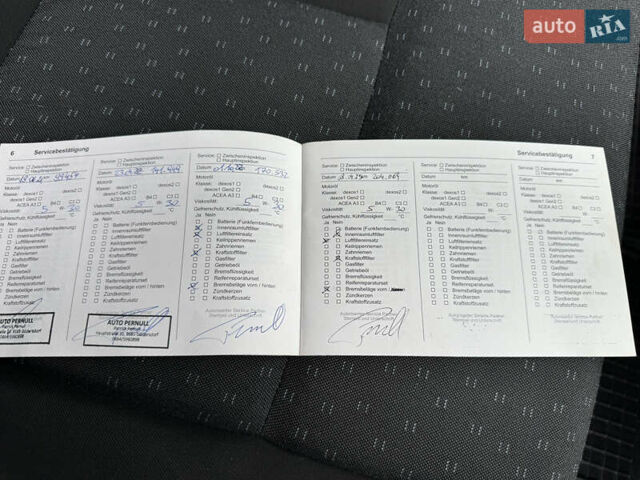 auto RIA.com
6 Servicebestätigung
Service: Zwischeninspektion
Hauptinspektion
Datum
Motoröl
Klasse: dexos1 dexos2
dexos1 Gen2
ACEA A3 B4 C3
Viskosität: 5 W- 30
Gefrierschutz, Kühlflüssigkeit: °C
Ja Nein
Batterie (Funkfernbedienung)
Innenraumluftfilter
Luftfiltereinsatz
Keilrippenriemen
Zahnriemen
Kraftstofffilter
Gasfilter
Getriebeöl
Bremsflüssigkeit
Reifenreparaturset
Bremsbeläge vorn / hinten
Zündkerzen
Kraftstoffzusatz
AUTO PERNULL
Patrick Pernull
Service: Zwischeninspektion
Hauptinspektion
Datum
Motoröl
Klasse: dexos1 dexos2
dexos1 Gen2
ACEA A3 B4 C3
Viskosität: 5 W- 30
Gefrierschutz, Kühlflüssigkeit: °C
Ja Nein
Batterie (Funkfernbedienung)
Innenraumluftfilter
Luftfiltereinsatz
Keilrippenriemen
Zahnriemen
Kraftstofffilter
Gasfilter
Getriebeöl
Bremsflüssigkeit
Reifenreparaturset
Bremsbeläge vorn / hinten
Zündkerzen
Kraftstoffzusatz
AUTO PERNULL
Patrick Pernull
Service: Zwischeninspektion
Hauptinspektion
Datum 170.532
Motoröl
Klasse: dexos1 dexos2
dexos1 Gen2
ACEA A3 B4 C3
Viskosität: 5 W- 30
Gefrierschutz, Kühlflüssigkeit: °C
Ja Nein
Batterie (Funkfernbedienung)
Innenraumluftfilter
Luftfiltereinsatz
Keilrippenriemen
Zahnriemen
Kraftstofffilter
Gasfilter
Getriebeöl
Bremsflüssigkeit
Reifenreparaturset
Bremsbeläge vorn / hinten
Zündkerzen
Kraftstoffzusatz
Autorisierter Service Partner
Stempel und Unterschrift
Servicebestätigung 7
Service: Zwischeninspektion
Hauptinspektion
Datum 204.069
Motoröl
Klasse: dexos1 dexos2
dexos1 Gen2
ACEA A3 B4 C3
Viskosität: 5 W- 30
Gefrierschutz, Kühlflüssigkeit: °C
Ja Nein
Batterie (Funkfernbedienung)
Innenraumluftfilter
Luftfiltereinsatz
Keilrippenriemen
Zahnriemen
Kraftstofffilter
Gasfilter
Getriebeöl
Bremsflüssigkeit
Reifenreparaturset
Bremsbeläge vorn
Zündkerzen
Kraftstoffzusatz
Autorisierter Service Partner
Stempel und Unterschrift
Service: Zwischeninspektion
Hauptinspektion
Datum km
Motoröl
Klasse: dexos1 dexos2
dexos1 Gen2
ACEA A3 B4 C3
Viskosität: W-
Gefrierschutz, Kühlflüssigkeit: °C
Ja Nein
Batterie (Funkfernbedienung)
Innenraumluftfilter
Luftfiltereinsatz
Keilrippenriemen
Zahnriemen
Kraftstofffilter
Gasfilter
Getriebeöl
Bremsflüssigkeit
Reifenreparaturset
Bremsbeläge vorn / hinten
Zündkerzen
Kraftstoffzusatz
Autorisierter Service Partner
Stempel und Unterschrift
Service: Zwischeninspektion
Hauptinspektion
Datum km
Motoröl
Klasse: dexos1 dexos2
dexos1 Gen2
ACEA A3 B4 C3
Viskosität: W-
Gefrierschutz, Kühlflüssigkeit: °C
Ja Nein
Batterie (Funkfernbedienung)
Innenraumluftfilter
Luftfiltereinsatz
Keilrippenriemen
Zahnriemen
Kraftstofffilter
Gasfilter
Getriebeöl
Bremsflüssigkeit
Reifenreparaturset
Bremsbeläge vorn / hinten
Zündkerzen
Kraftstoffzusatz
Autorisierter Service Partner
Stempel und Unterschrift